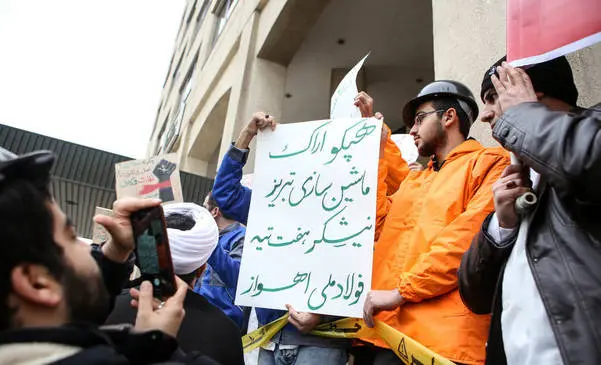 هپکو اراک
ماشین سازی تبریز
نیشکر هفت تپه
فولاد ملی اهواز